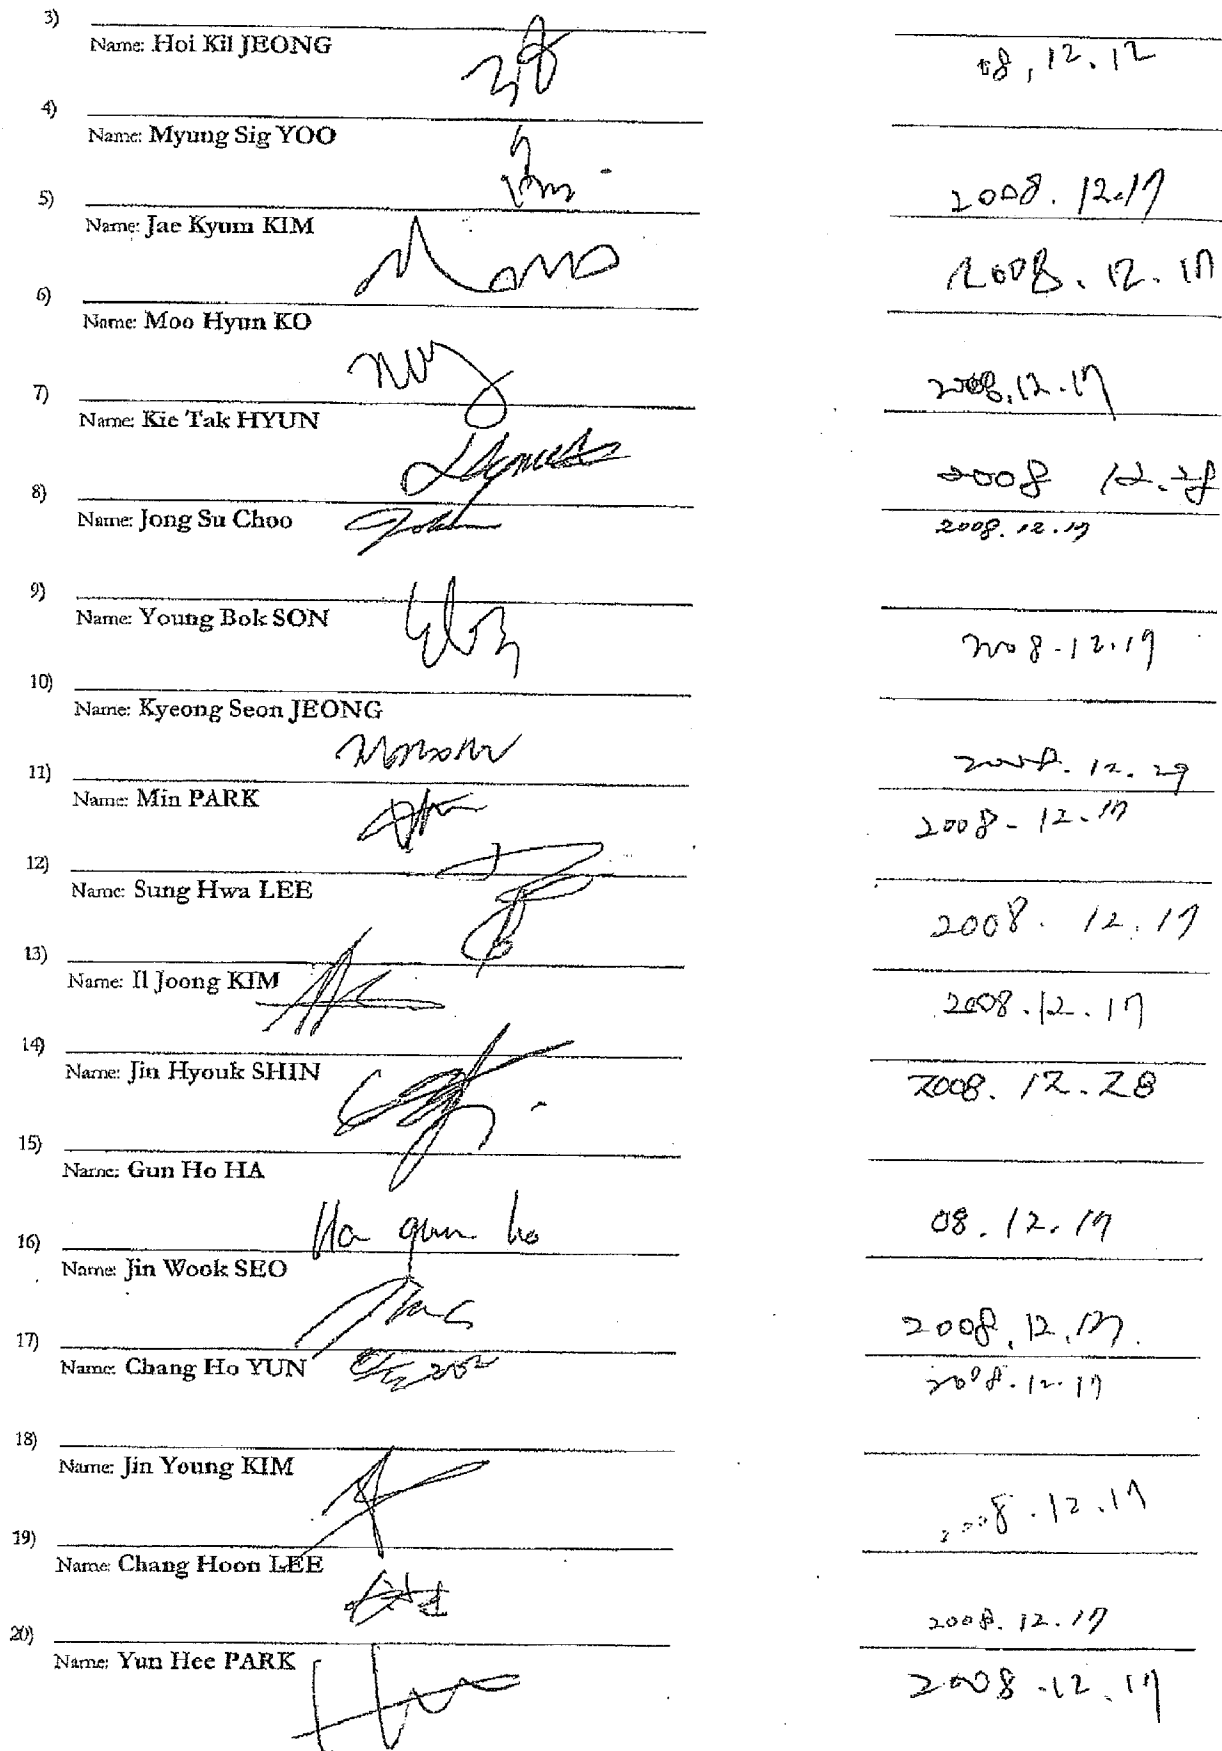 3)
Name: Hoi Kil JEONG
08, 12. 12
4)
Name: Myung Sig YOO
2008. 12.17
5)
Name: Jae Kyum KIM
2008. 12. 17
6)
Name: Moo Hyun KO
2008.12.17
7)
Name: Kie Tak HYUN
2008 12.28
8)
Name: Jong Su Choo
2008.12.17
9)
Name: Young Bok SON
2008.12.17
10)
Name: Kyeong Seon JEONG
2008. 12. 29
11)
Name: Min PARK
2008. 12. 17
12)
Name: Sung Hwa LEE
2008. 12. 17
13)
Name: Il Joong KIM
2008.12.17
14)
Name: Jin Hyouk SHIN
2008. 12. 28
15)
Name: Gun Ho HA
Ha gun ho
08. 12. 17
16)
Name: Jin Wook SEO
2008. 12. 17.
17)
Name: Chang Ho YUN
2008.12.17
18)
Name: Jin Young KIM
2008.12.17
19)
Name: Chang Hoon LEE
2008. 12. 17
20)
Name: Yun Hee PARK
2008.12.17